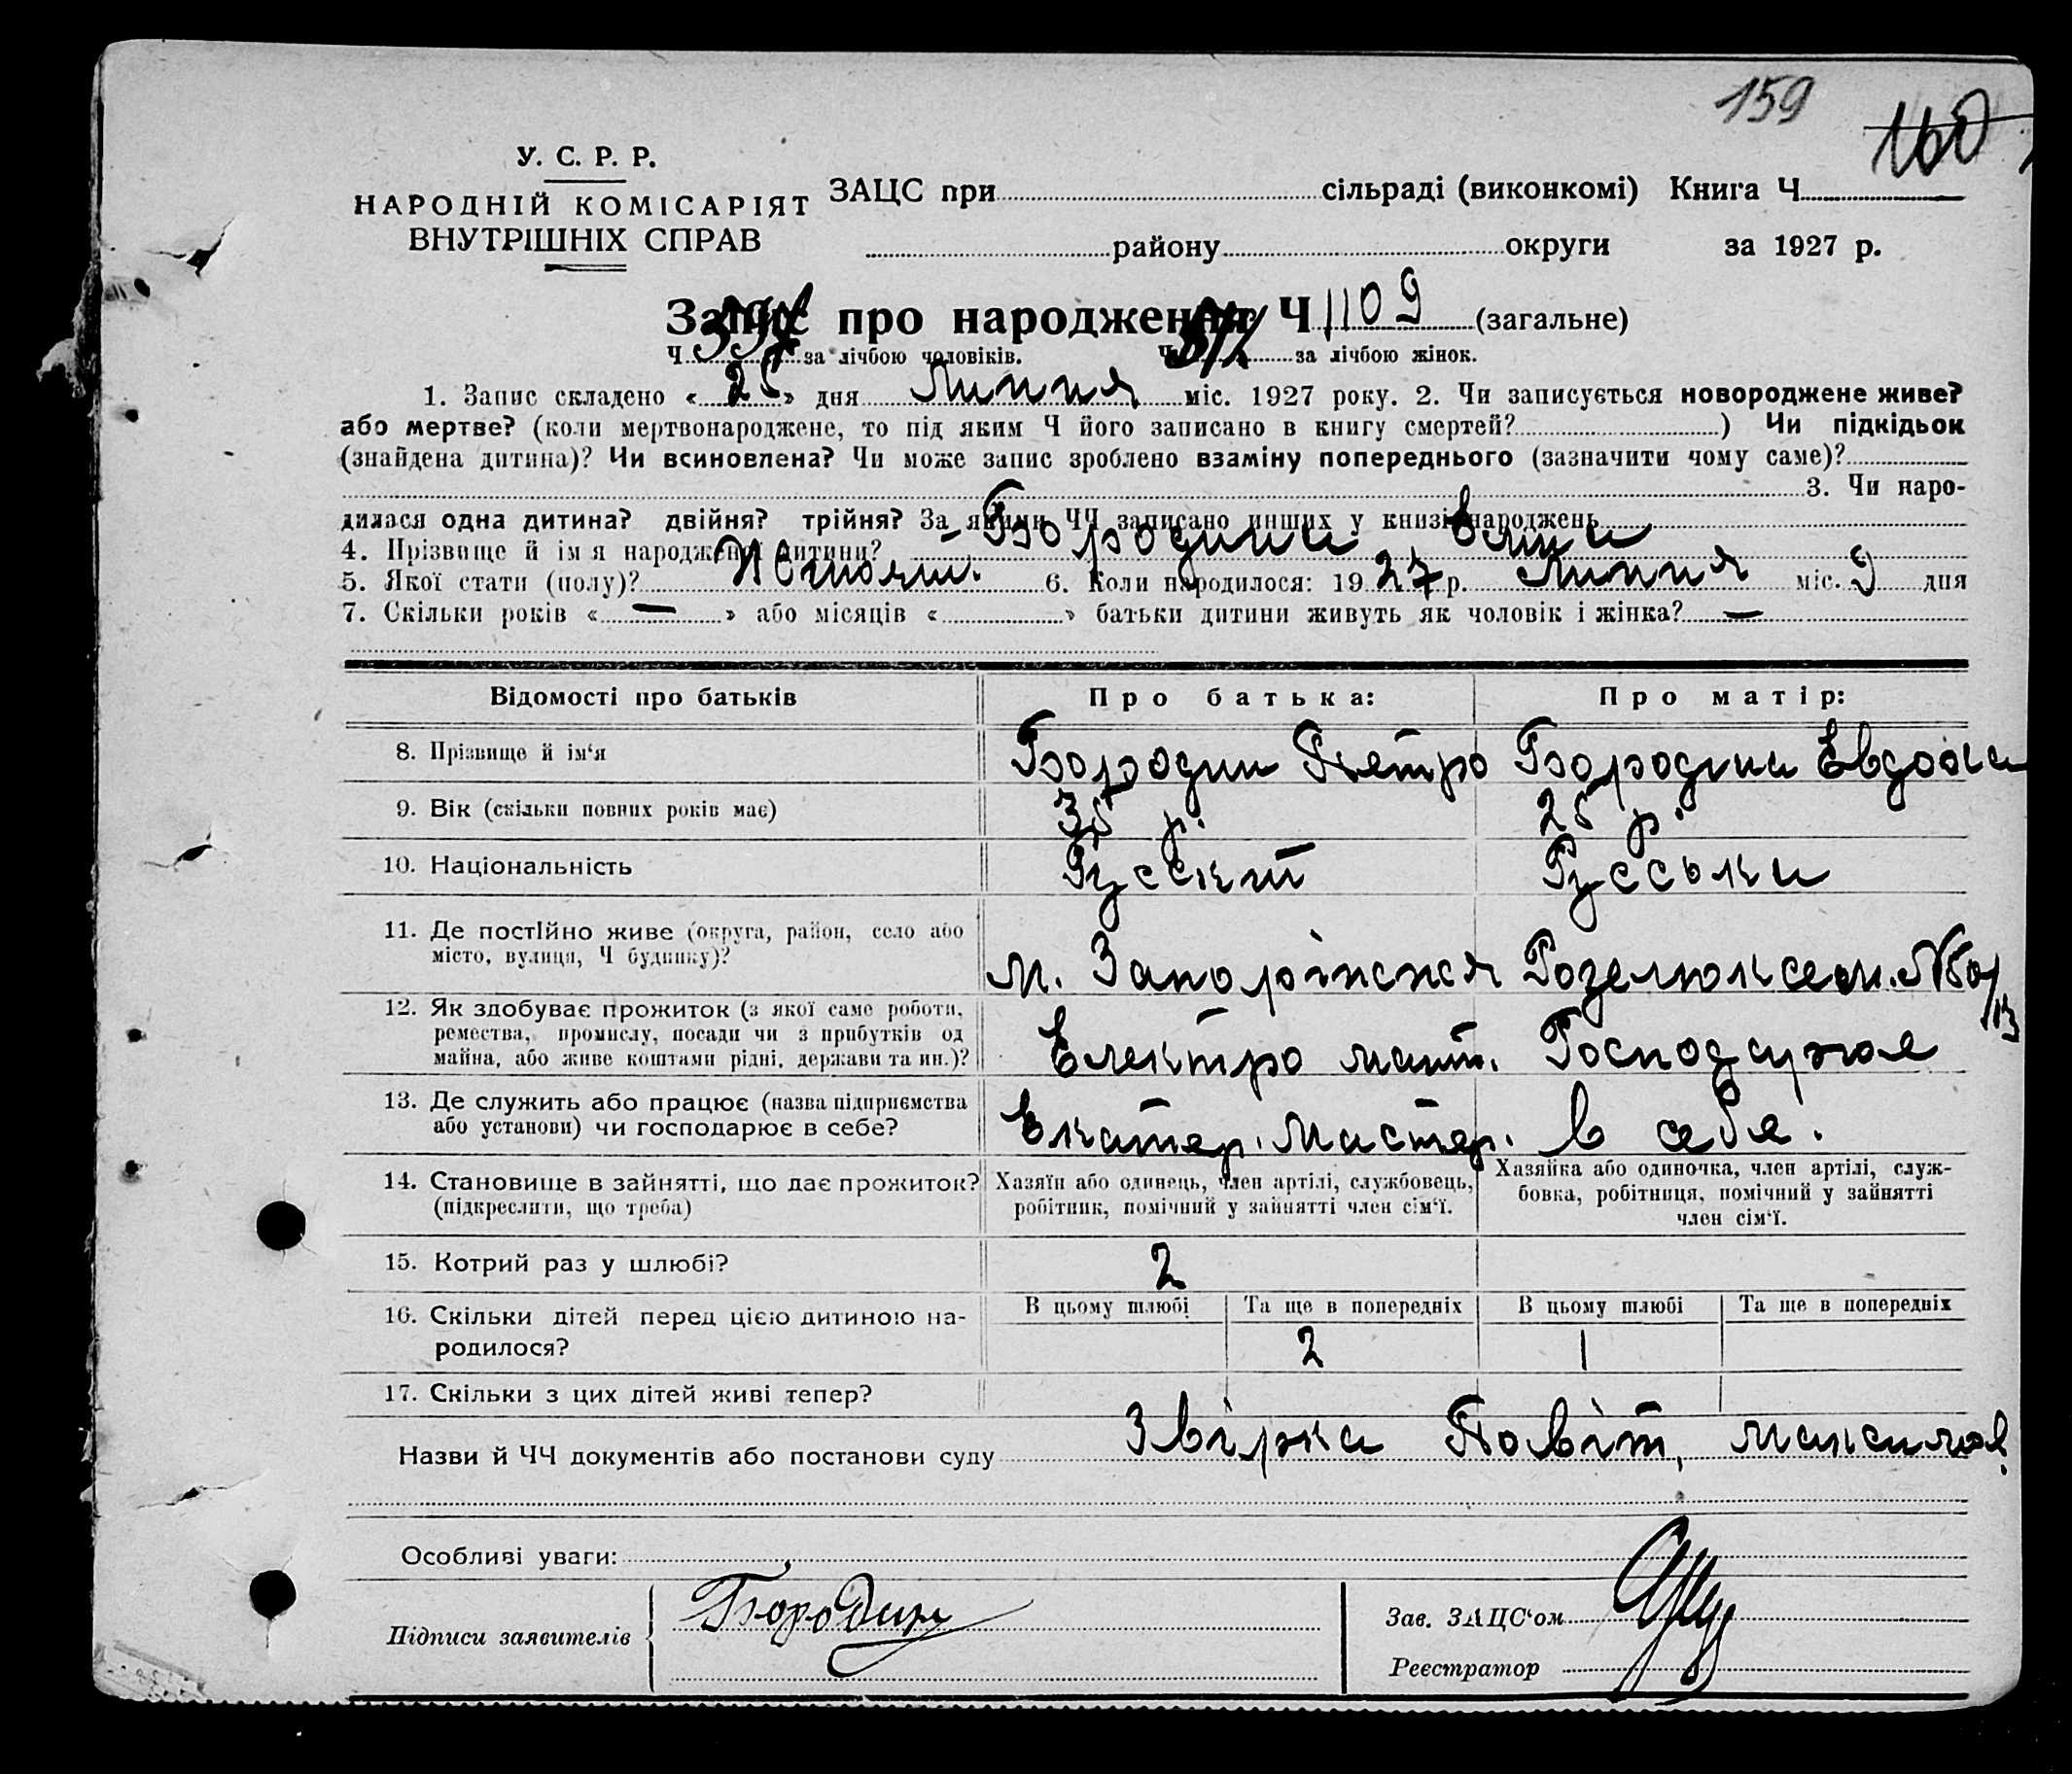 159
160
У. С. Р. Р.
НАРОДНІЙ КОМІСАРІЯТ
ВНУТРІШНІХ СПРАВ
ЗАЦС при сільраді (виконкомі) Книга Ч
району округи за 1927 р.
Запис про народження Ч 1109 (загальне)
Ч за лічбою чоловіків. Ч за лічбою жінок.
1. Запис складено « » дня Липня міс. 1927 року. 2. Чи записується новороджене живе?
або мертве? (коли мертвонароджене, то під яким Ч його записано в книгу смертей? ) Чи підкідьок
(знайдена дитина)? Чи всиновлена? Чи може запис зроблено взаміну попереднього (зазначити чому саме)?
3. Чи наро-
дилася одна дитина? двійня? трійня? За якими ЧЧ записано инших у книзі народжень
4. Прізвище й ім я народженої дитини? - Бородина
5. Якої стати (полу)? 6. Коли народилося: 19 27 р. Липня міс. 9 дня
7. Скільки років « — » або місяців « » батьки дитини живуть як чоловік і жінка? —
Відомості про батьків Про батька: Про матір:
8. Прізвище й ім'я Бородин Петро Бородина Евдокя
9. Вік (скільки повних років має) 35 р. 25 р.
10. Національність Русский Руська
11. Де постійно живе (округа, район, село або
місто, вулиця, Ч будинку)? м. Запоріжжя Розелюксем. №50/13
12. Як здобуває прожиток (з якої саме роботи,
ремества, промислу, посади чи з прибутків од
майна, або живе коштами рідні, держави та ин.)? Електро монт. Господарює
13. Де служить або працює (назва підприємства
або установи) чи господарює в себе? Екатер. Мастер. в себе.
14. Становище в зайнятті, що дає прожиток?
(підкреслити, що треба)
Хазяїн або одинець, член артілі, службовець,
робітник, помічний у зайнятті член сім'ї.
Хазяйка або одиночка, член артілі, служ-
бовка, робітниця, помічний у зайнятті
член сім'ї.
15. Котрий раз у шлюбі? 2
16. Скільки дітей перед цією дитиною на-
родилося?
В цьому шлюбі Та ще в попередніх В цьому шлюбі Та ще в попередніх
2 1
17. Скільки з цих дітей живі тепер?
Назви й ЧЧ документів або постанови суду Звірка Повіт,
Особливі уваги:
Підписи заявителів Бородин
Зав. ЗАЦС'ом
Реєстратор